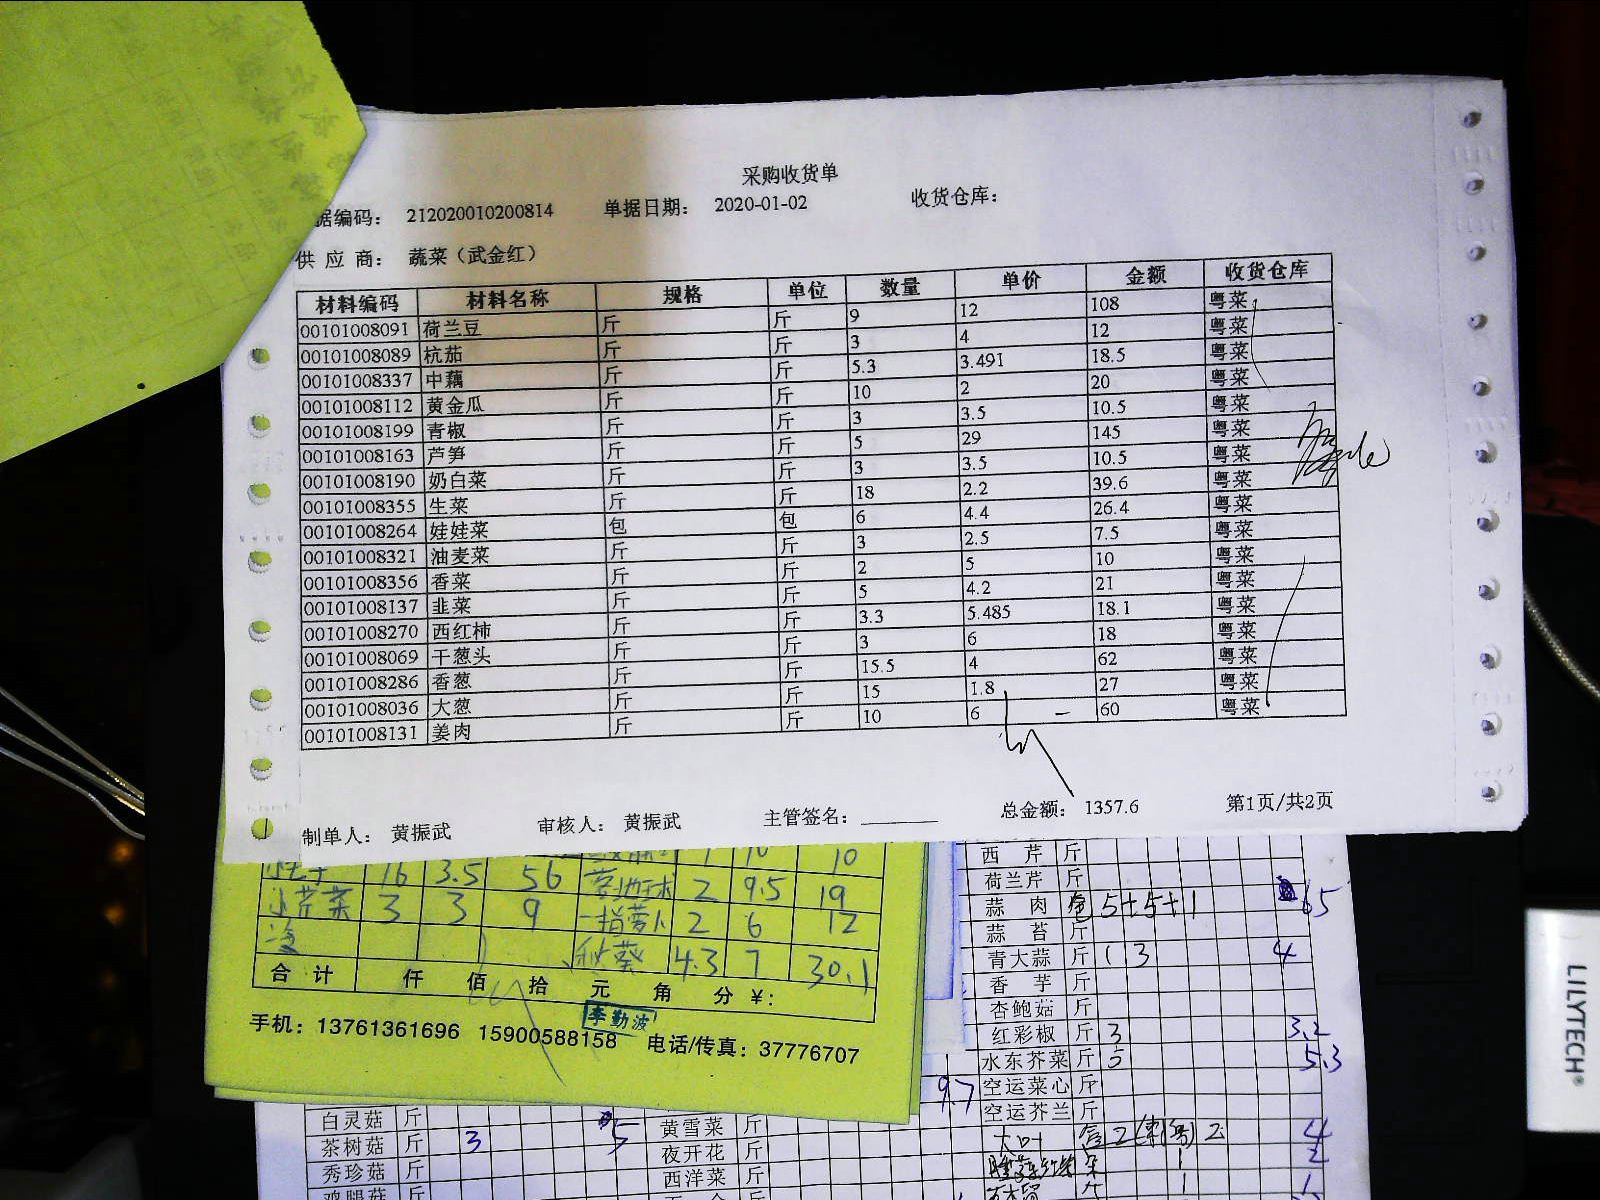 采购收货单
据编码: 212020010200814 单据日期: 2020-01-02 收货仓库:
供 应 商: 蔬菜(武金红)
材料编码 材料名称 规格 单位 数量 单价 金额 收货仓库
00101008091 荷兰豆 斤 斤 9 12 108 粤菜
00101008089 杭茄 斤 斤 3 4 12 粤菜
00101008337 中藕 斤 斤 5.3 3.491 18.5 粤菜
00101008112 黄金瓜 斤 斤 10 2 20 粤菜
00101008199 青椒 斤 斤 3 3.5 10.5 粤菜
00101008163 芦笋 斤 斤 5 29 145 粤菜
00101008190 奶白菜 斤 斤 3 3.5 10.5 粤菜
00101008355 生菜 斤 斤 18 2.2 39.6 粤菜
00101008264 娃娃菜 包 包 6 4.4 26.4 粤菜
00101008321 油麦菜 斤 斤 3 2.5 7.5 粤菜
00101008356 香菜 斤 斤 2 5 10 粤菜
00101008137 韭菜 斤 斤 5 4.2 21 粤菜
00101008270 西红柿 斤 斤 3.3 5.485 18.1 粤菜
00101008069 干葱头 斤 斤 3 6 18 粤菜
00101008286 香葱 斤 斤 15.5 4 62 粤菜
00101008036 大葱 斤 斤 15 1.8 27 粤菜
00101008131 姜肉 斤 斤 10 6 60 粤菜
制单人: 黄振武 审核人: 黄振武 主管签名: 总金额: 1357.6 第1页/共2页
16 3.5 56 2 9.5 19
小芹菜 3 3 9 一指萝卜 2 6 12
秋葵 4.3 7 30.1
合 计 仟 佰 拾 元 角 分 ¥:
李勤波
手机: 13761361696 15900588158 电话/传真: 37776707
西 芹 斤
荷兰芹 斤
蒜 肉 5+5+1 65
蒜 苔 斤
青大蒜 斤 1 3 4
香 芋 斤
杏鲍菇 斤
红彩椒 斤 3 3.2
水东芥菜 斤 5 5.3
9.7 空运菜心 斤
空运芥兰 斤
白灵菇 斤 黄雪菜 斤
茶树菇 斤 3 5 夜开花 斤
秀珍菇 斤 西洋菜 斤
鸡腿菇 斤
LILYTECH®